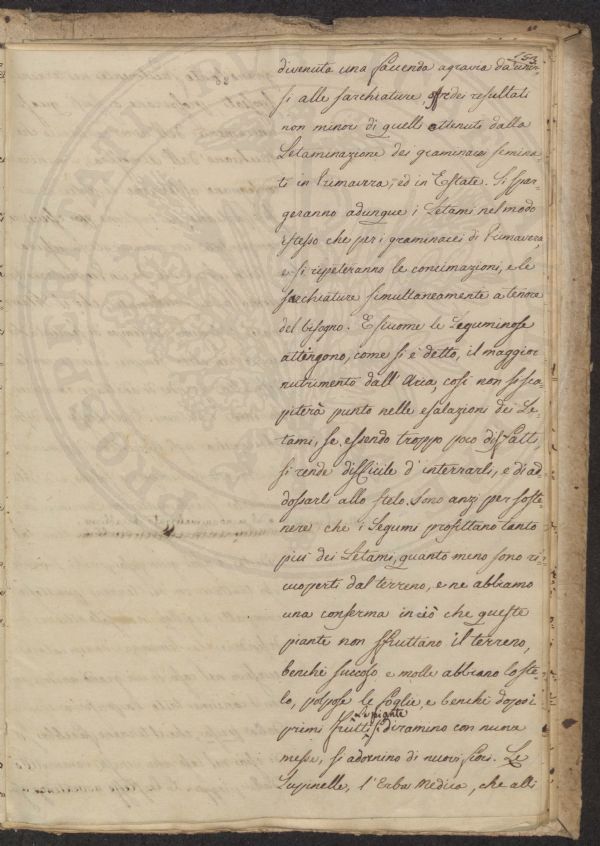 153
divenuta una facenda agraria da unir-
si alle sarchiature, offre dei resultati
non minori di quelli ottenuti dalla
Letaminazione dei graminacei semina
ti in Primavera, ed in Estate. Si spar-
geranno adunque i Letami nel modo
istesso che per i graminacei di Primavera,
e si ripeteranno le concimazioni, e le
sarchiature simultaneamente a tenore
del bisogno. E siccome le Leguminose
attengono, come si è detto, il maggior
nutrimento dall'Aria, così non si sca
piterà punto nelle esalazioni dei Le-
tami, se, essendo troppo poco disfatti,
si rende difficile d'interrarli, e di ad
dossarli allo stelo. Sono anzi per soste-
nere che i Legumi profittano tanto
più dei Letami, quanto meno sono ri
cuoperti dal terreno, e ne abbiamo
una conferma in ciò che queste
piante non sfruttano il terreno,
benchè succoso e molle abbiano lo ste-
lo, polpose le foglie, e benchè dopo i
Le piante
primi frutti si diramino con nuova
messe, si adornino di nuovi fiori. Le
Lupinelle, l'Erba Medica, che alli